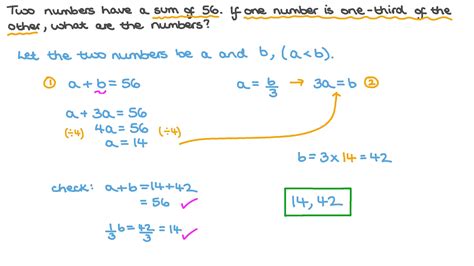 Two numbers have a sum of 56. If one number is one-third of the
other, what are the numbers?
Let the two numbers be a and b, (a<b).
① a + b = 56
a + 3a = 56
(÷4) 4a = 56 (÷4)
a = 14
a = b/3 → 3a = b ②
b = 3 × 14 = 42
check: a+b = 14+42
= 56 ✓
1/3 b = 42/3 = 14 ✓
14, 42